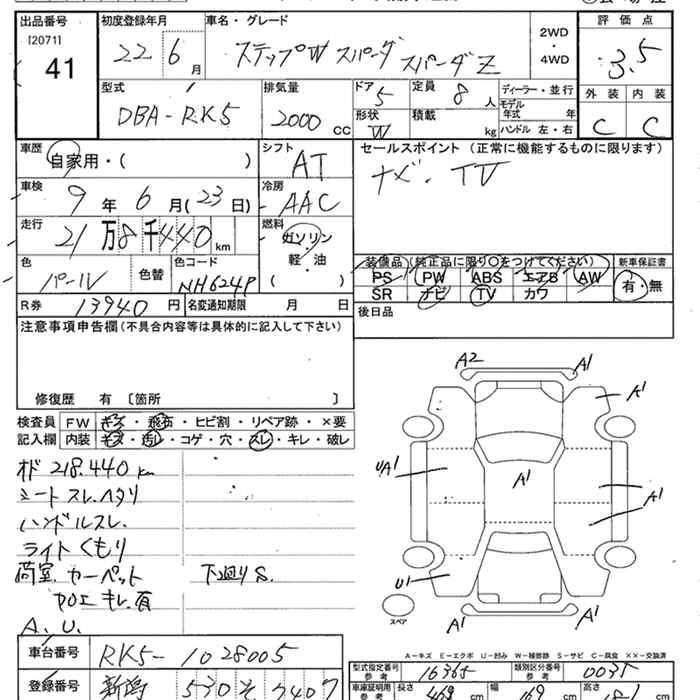 出品番号 初度登録年月 車名・グレード 2WD・4WD 評価点
[2071] 41 22年6月 ステップW スパーダ スパーダZ 3.5
外装 内装
C C
型式 排気量 ドア 定員 ディーラー・並行
DBA-RK5 2000cc 5 8人 モデル年式 年
形状 W 積載 kg ハンドル 左・右
車歴 自家用・( ) シフト AT セールスポイント(正常に機能するものに限ります)
ナビ・TV
車検 9年6月(23日) 冷房 AAC
走行 21万8千440km 燃料 ガソリン・軽油 ( )
色 パール 色替 色コード NH624P
装備品(純正品に限り○をつけてください) 新車保証書
PS PW ABS エアB AW 有・無
SR ナビ TV カワ
R券 13940円 名変通知期限 月 日 後日品
注意事項申告欄(不具合内容等は具体的に記入して下さい)
修復歴 有 〔箇所 〕
検査員記入欄 FW キズ・飛石・ヒビ割・リペア跡・×要
内装 キズ・汚レ・コゲ・穴・スレ・キレ・破レ
オド 218.440km
シートスレ.ヘタリ
ハンドルスレ.
ライトくもり
荷室カーペット 下廻りS.
加工キレ有
A.U.
A2 A1
A1
UA1 A1 A1
U1
A1 A1
スペア
A-キズ E-エクボ U-凹み W-補修跡 S-サビ C-腐食 ××-交換済
車台番号 RK5-1028005
型式指定番号 参考 16365 類別区分番号 参考 0035
登録番号 新潟 530 そ 7407
車庫証明用 参考 長さ 468cm 幅 169cm 高さ 181cm